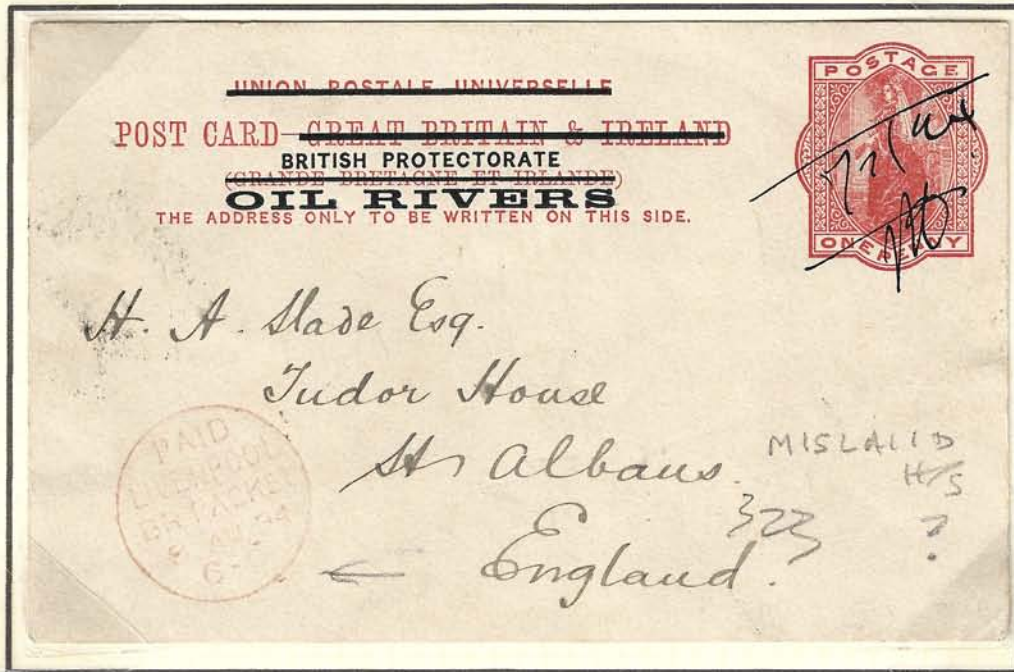 UNION POSTALE UNIVERSELLE
POSTAGE
POST CARD GREAT BRITAIN & IRELAND
BRITISH PROTECTORATE
(GRANDE BRETAGNE ET IRLANDE)
OIL RIVERS
THE ADDRESS ONLY TO BE WRITTEN ON THIS SIDE.
ONE PENNY
H. A. Slade Esq.
Tudor House
St Albans.
England.
PAID
LIVERPOOL
BR. PACKET
94
6
MISLAID
H/S
?
323